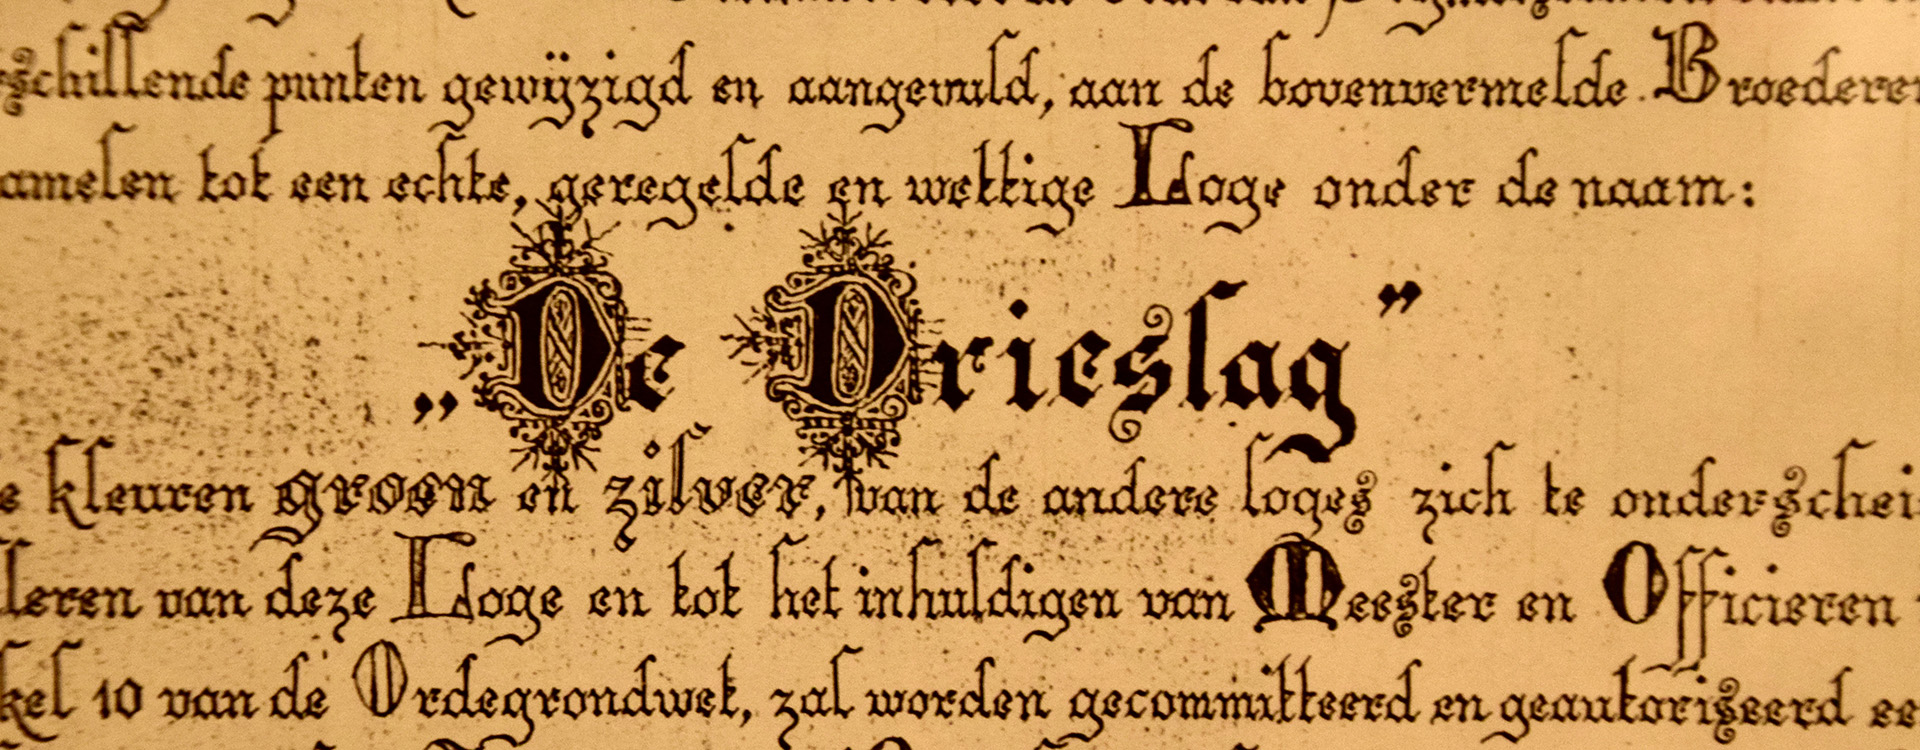 schillende punten gewÿzigd en aangevuld, aan de bovenvermelde Broederen
amelen tot een echte, geregelde en wettige Loge onder de naam:
„De Drieslag”
e kleuren groen en zilver, van de andere loges zich te onderschei
leren van deze Loge en tot het inhuldigen van Meester en Officieren
kel 10 van de Ordegrondwet, zal worden gecommitteerd en geautoriseerd ee